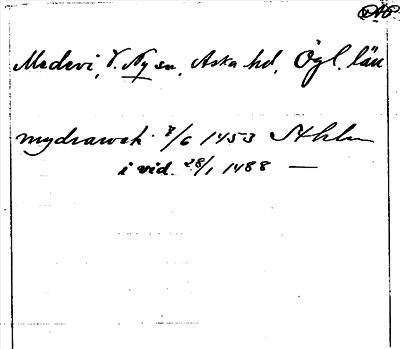 Medevi, V. Ny sn, Aska hd, Ögl. län
mydhawek 7/6 1453 Sthlm
i vid. 28/1 1488 —